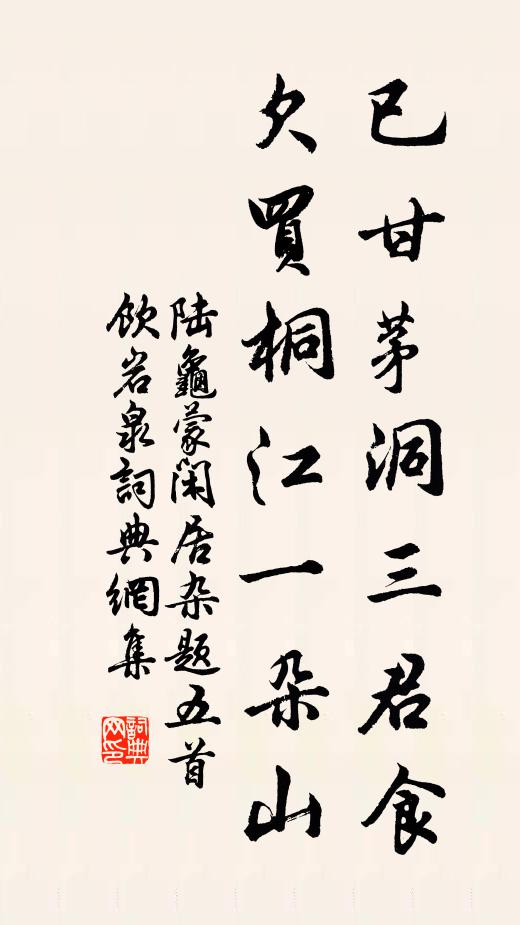 已甘茅洞三君食
欠買桐江一朵山
陆龜蒙闲居杂题五首
飲岩泉詞典網集
詞典网印